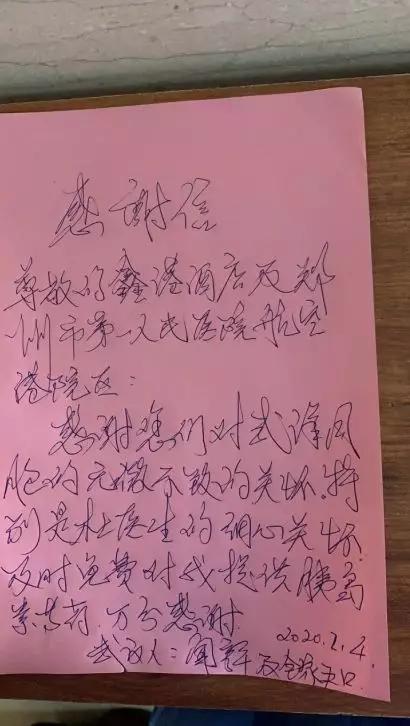 感谢信
尊敬的鑫港酒店及郑
州市第一人民医院航空
港院区：
感谢您们对武汉同
胞的无微不致的关怀.特
别是杜医生的细心关怀.
及时免费对我提供胰岛
素专药.万分感谢.
2020.2.4.
武汉人：闻辉及全家三口